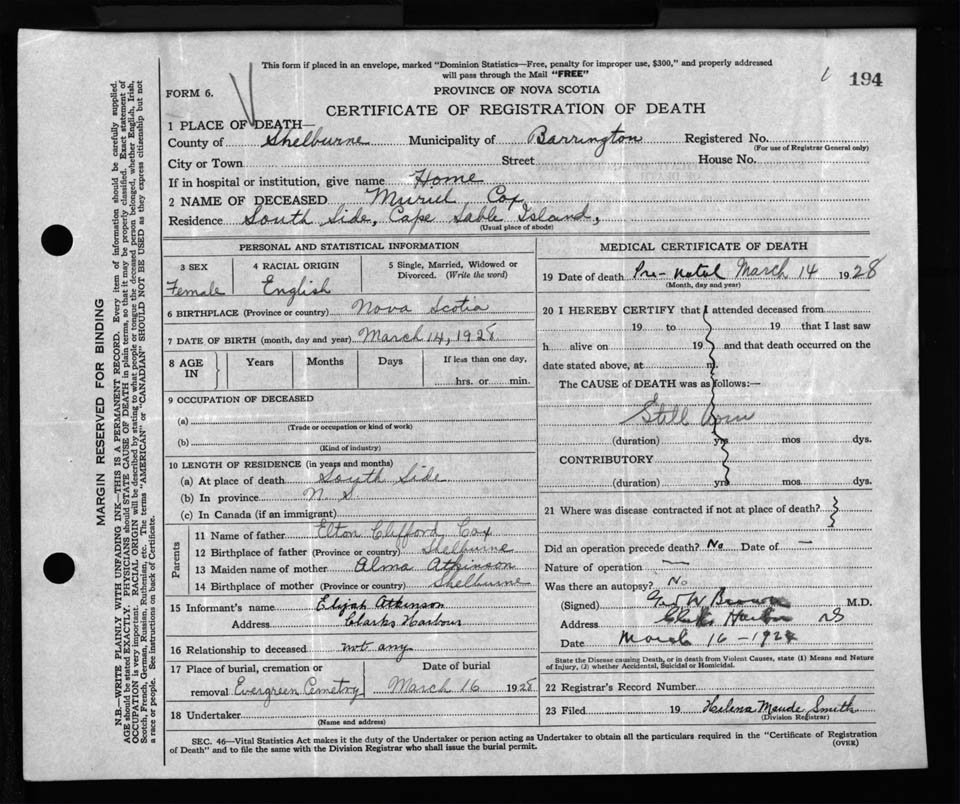 This form if placed in an envelope, marked "Dominion Statistics—Free, penalty for improper use, $300," and properly addressed
will pass through the Mail "FREE"
194
FORM 6.
PROVINCE OF NOVA SCOTIA
CERTIFICATE OF REGISTRATION OF DEATH
1 PLACE OF DEATH—
County of Shelburne Municipality of Barrington Registered No.
(For use of Registrar General only)
City or Town Street House No.
If in hospital or institution, give name Home
2 NAME OF DECEASED Muriel Cox
Residence South Side, Cape Sable Island,
(Usual place of abode)
PERSONAL AND STATISTICAL INFORMATION
3 SEX 4 RACIAL ORIGIN 5 Single, Married, Widowed or
Divorced. (Write the word)
Female English
6 BIRTHPLACE (Province or country) Nova Scotia
7 DATE OF BIRTH (month, day and year) March 14, 1928
8 AGE IN Years Months Days If less than one day,
hrs. or min.
9 OCCUPATION OF DECEASED
(a)
(Trade or occupation or kind of work)
(b)
(Kind of industry)
10 LENGTH OF RESIDENCE (in years and months)
(a) At place of death South Side
(b) In province N. S.
(c) In Canada (if an immigrant)
Parents
11 Name of father Elton Clifford Cox
12 Birthplace of father (Province or country) Shelburne
13 Maiden name of mother Alma Atkinson
14 Birthplace of mother (Province or country) Shelburne
15 Informant's name Elijah Atkinson
Address Clarks Harbour
16 Relationship to deceased not any
17 Place of burial, cremation or Date of burial
removal Evergreen Cemetry March 16 1928
18 Undertaker
(Name and address)
MEDICAL CERTIFICATE OF DEATH
19 Date of death Pre-natal March 14 1928
(Month, day and year)
20 I HEREBY CERTIFY that I attended deceased from
19 to 19 that I last saw
h alive on 19 and that death occurred on the
date stated above, at m.
The CAUSE of DEATH was as follows:—
Still Born
(duration) yrs mos dys.
CONTRIBUTORY
(duration) yrs mos dys.
21 Where was disease contracted if not at place of death?
Did an operation precede death? No Date of —
Nature of operation —
Was there an autopsy? No
(Signed) Brown M.D.
Address Harbor NS
Date March 16-1928
State the Disease causing Death, or in death from Violent Causes, state (1) Means and Nature
of Injury, (2) whether Accidental, Suicidal or Homicidal.
22 Registrar's Record Number
23 Filed 19 Helena Maude Smith
(Division Registrar)
SEC. 46—Vital Statistics Act makes it the duty of the Undertaker or person acting as Undertaker to obtain all the particulars required in the "Certificate of Registration
of Death" and to file the same with the Division Registrar who shall issue the burial permit.
(OVER)
MARGIN RESERVED FOR BINDING
N.B.—WRITE PLAINLY WITH UNFADING INK—THIS IS A PERMANENT RECORD. Every item of information should be carefully supplied.
AGE should be stated EXACTLY. PHYSICIANS should STATE CAUSE OF DEATH in plain terms, so that it may be properly classified. Exact statement of
OCCUPATION is very important. RACIAL ORIGIN will be described by stating to what people or tongue the deceased person belonged, whether English, Irish,
Scotch, French, German, Russian, Ruthenian, etc. The terms "AMERICAN" or "CANADIAN" SHOULD NOT BE USED as they express citizenship but not
a race or people. See instructions on back of Certificate.